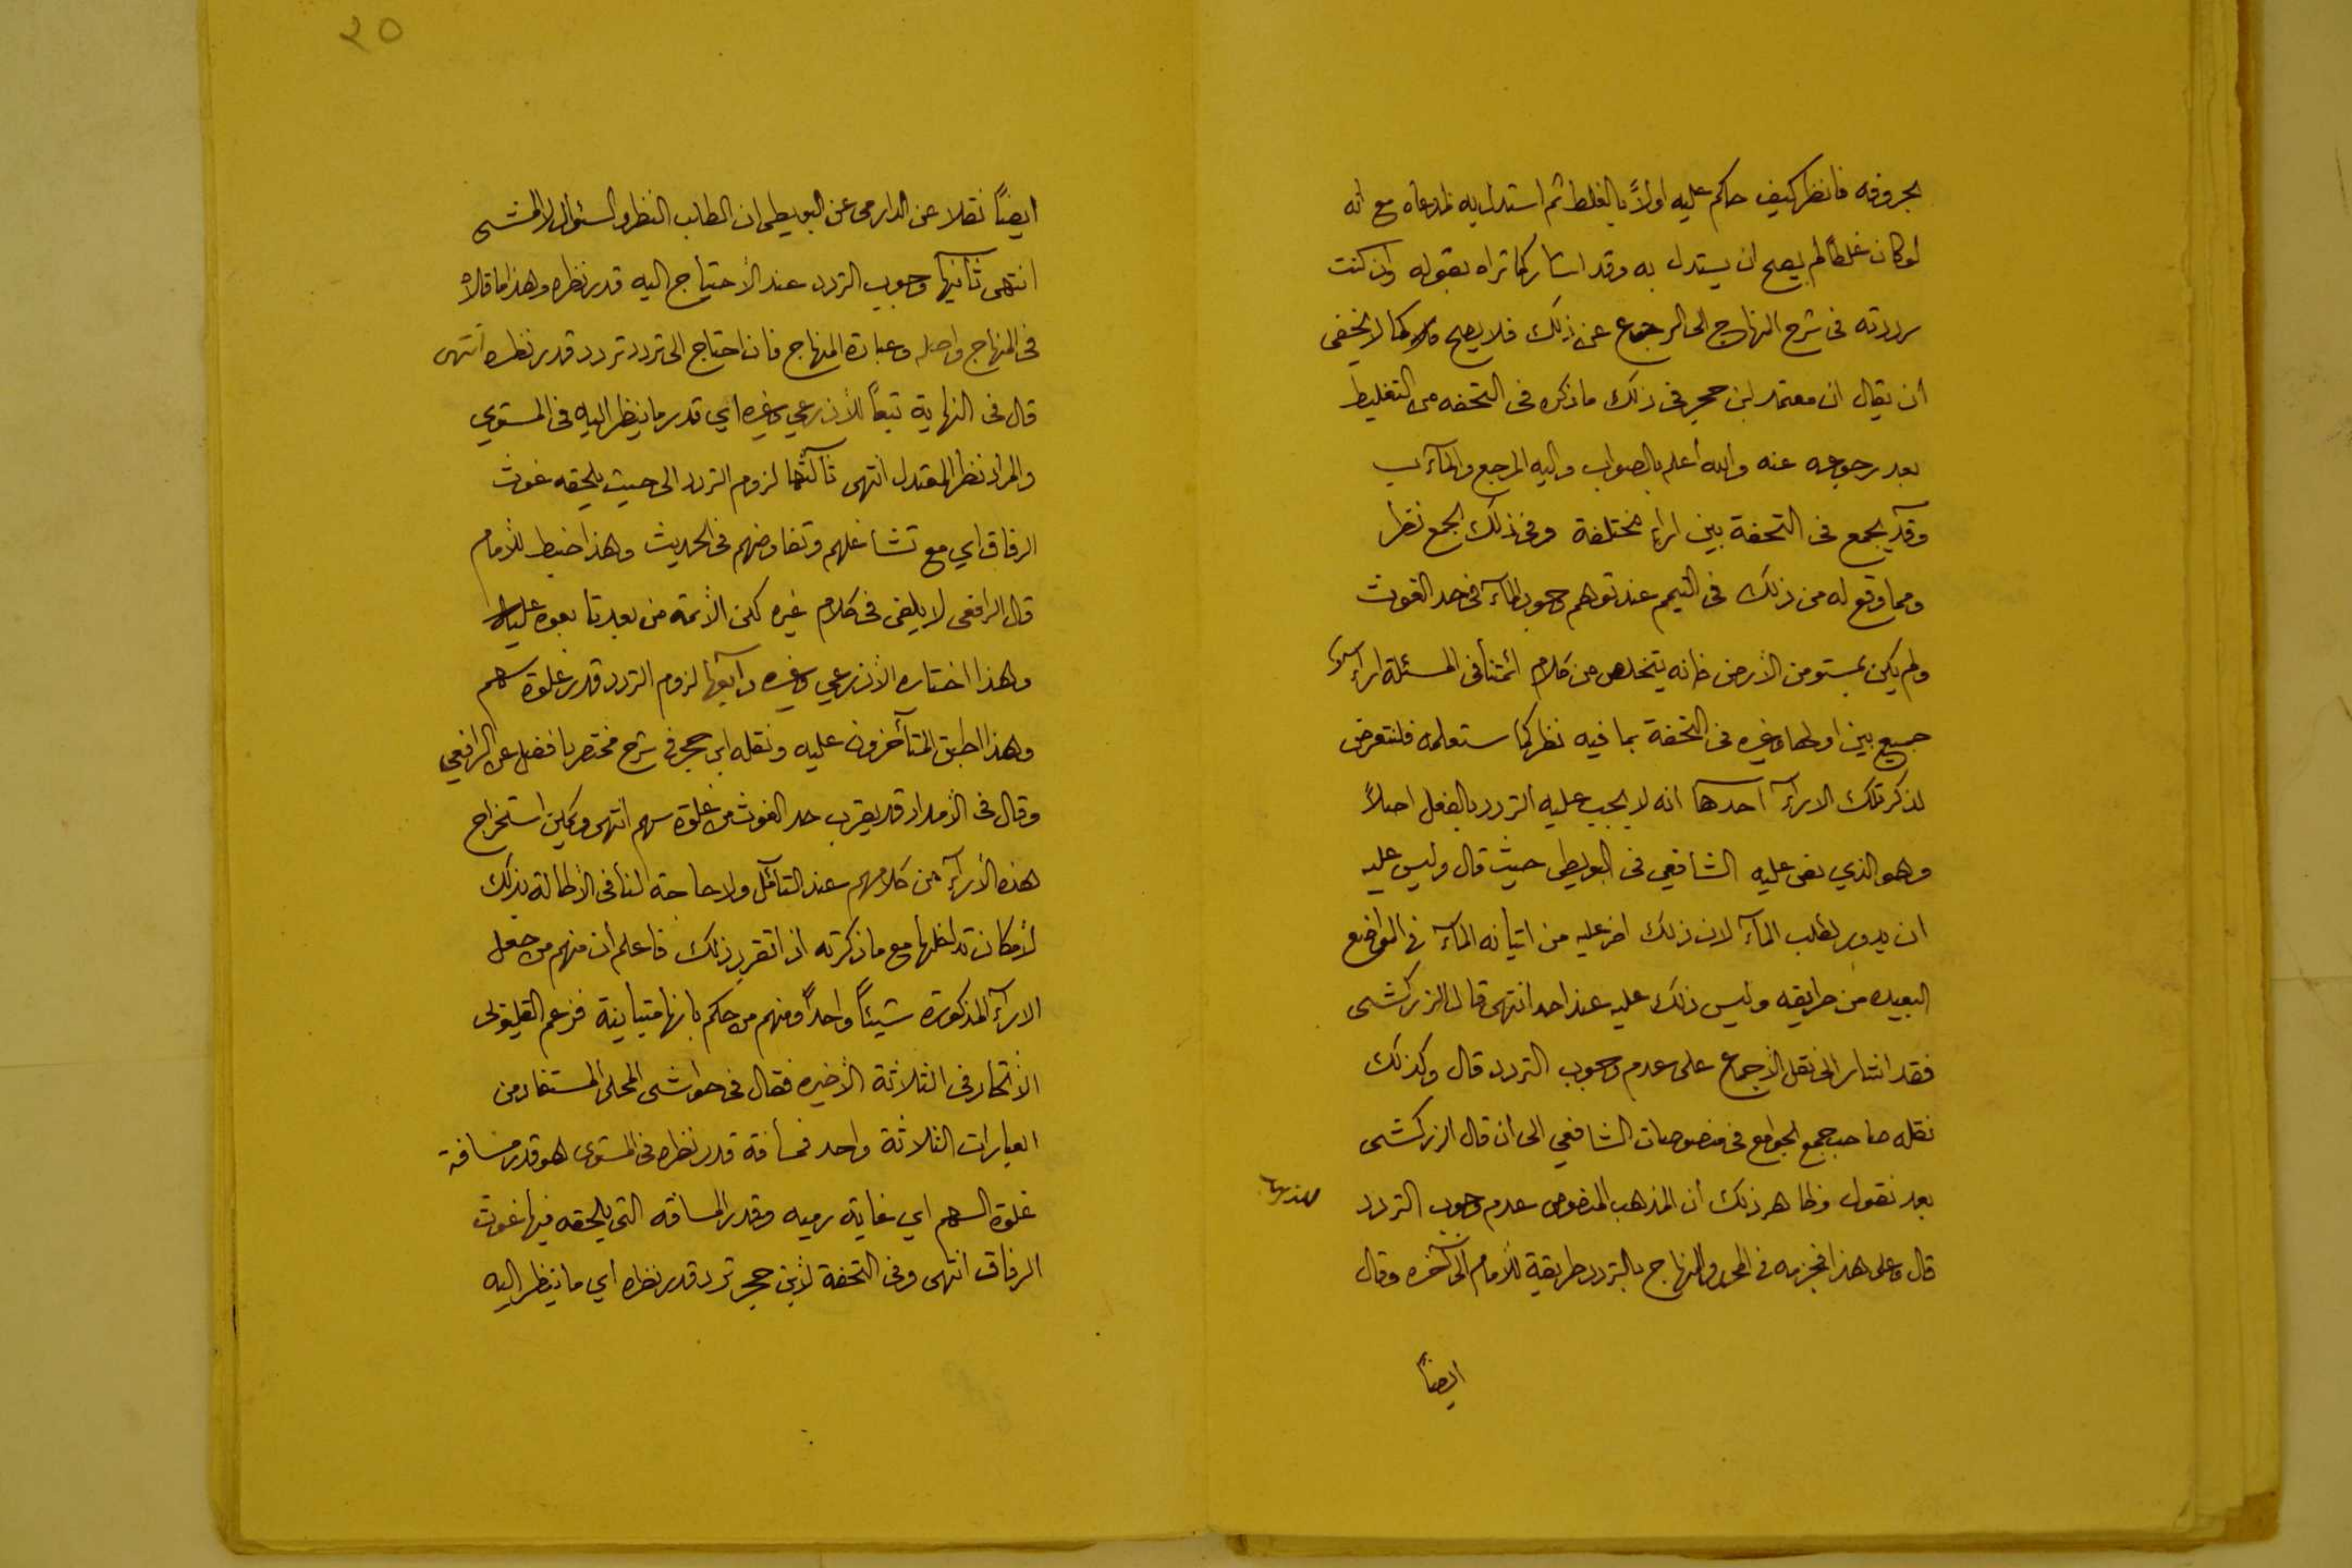 بحروفه فانظر كيف حاكم عليه اولاً بالغلط ثم استدل به لمدعاه مع انه
لو كان غلطاً لم يصح ان يستدل به وقد اشار كما تراه بقوله وان كنت
رددته فى شرح المنهاج الى الرجوع عن ذلك فلا يصح كما لا يخفى
ان يقال ان معتمد ابن حجر فى ذلك ما ذكره فى التحفه من التغليط
بعد رجوعه عنه والله أعلم بالصواب واليه المرجع والمآب
وقد يجمع فى التحفة بين اراء مختلفة وفى ذلك الجمع نظر
ومما وقع له من ذلك فى التيمم عند توهم وجود المآء فى حد الغوث
ولم يكن بمستو من الأرض فانه يتخلص من كلام ائمتنا فى المسئلة اراء
جميع بين اولها وغيره فى التحفة بما فيه نظر كما ستعلمه فلنتعرض
لذكر تلك الارآء احدها انه لا يجب عليه التردد بالفعل اصلاً
وهو الذي نص عليه الشافعي فى البويطى حيث قال وليس عليه
ان يدور لطلب المآء لان ذلك اضر عليه من اتيانه المآء فى المواضع
البعيده من طريقه وليس ذلك عليه عند احد انتهى قال الزركشى
فقد اشار الى نقل الأجماع على عدم وجوب التردد قال وكذلك
نقله صاحب جمع الجوامع فى منصوصات الشافعي الى ان قال الزركشى
بعد نقول وظاهر ذلك أن المذهب المنصوص عدم وجوب التردد
قال وعلى هذا فجزمه فى المحرر والمنهاج بالتردد طريقة للأمام الى آخره وقال
ايضاً
٢٥
ايضاً نقلا عن الدارمى عن البويطى ان الطلب النظر والسئوال لا المشى
انتهى ثانيها وجوب التردد عند الأحتياج اليه قدر نظره وهذا ما قاله
فى المنهاج واصله وعبارة المنهاج فان احتاج الى تردد تردد قدر نظره انتهى
قال فى النهاية تبعاً للأذرعي وغيره اي قدر ما ينظر اليه فى المستوي
والمراد نظر المعتدل انتهى ثالثها لزوم التردد الى حيث يلحقه غوث
الرفاق اي مع تشاغلهم وتفاوضهم فى الحديث وهذا ضبط للأمام
قال الرافعى لا يلفى فى كلام غيره لكن الأئمة من بعده تابعوه عليه
وهذا اختاره الأذرعي وغيره رابعها لزوم التردد قدر غلوة سهم
وهذا اطبق المتأخرون عليه ونقله ابن حجر فى شرح مختصر بافضل عن الرافعي
وقال فى الأمداد قد يقرب حد الغوث من غلوة سهم انتهى ويمكن استخراج
هذه الأرآء من كلامهم عند التأمّل ولا حاجة لنا فى الأطالة بذلك
لأمكان تداخلها مع ما ذكرته اذا تقرر ذلك فاعلم أن منهم من جعل
الارآء المذكورة شيئاً واحداً ومنهم من حكم بانها متباينة فزعم القليوبى
الأتحاد فى الثلاثة الأخيره فقال فى حواشى المحلى المستفاد من
العبارات الثلاثة واحد فمسافة قدر نظره فى المستوى هو قدر مسافة
غلوة السهم اي غاية رميه وقدر المسافه التى يلحقه فيها غوث
الرفاق انتهى وفى التحفة لأبن حجر تردد قدر نظره اي ما ينظر اليه